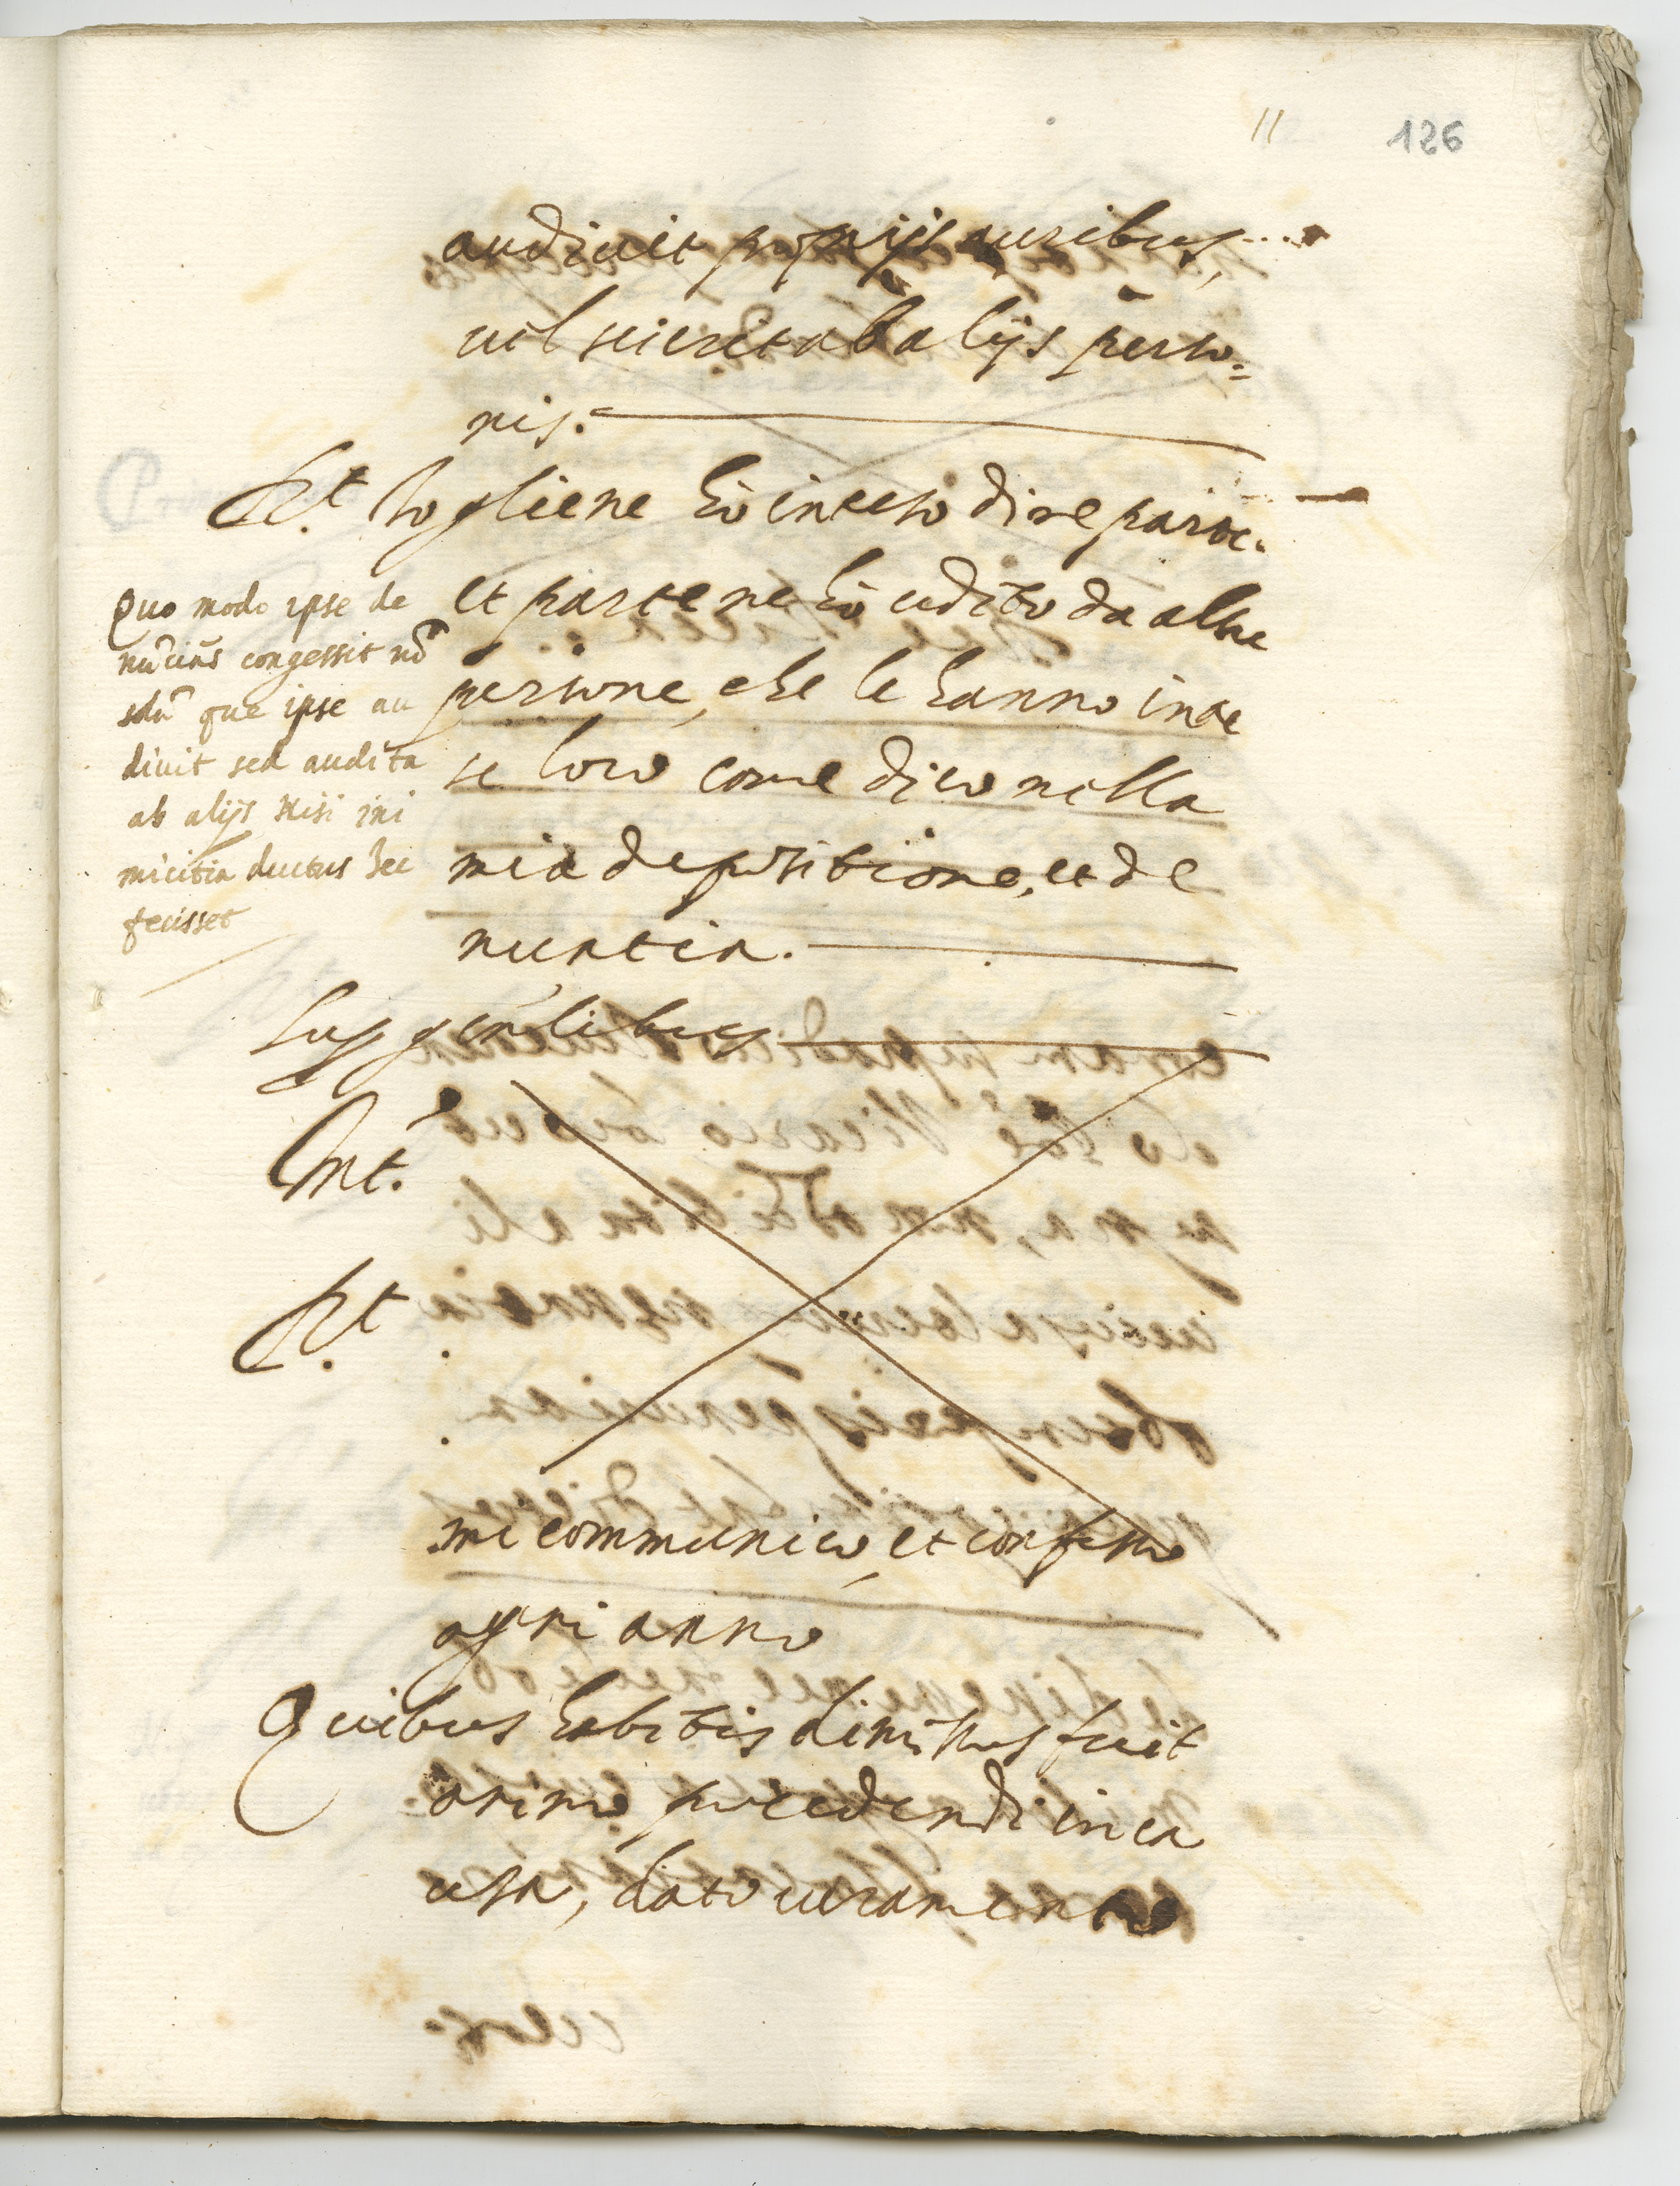 11 126
audivit proprijs auribus,
vel sciverit ab alijs perso=
nis.
Rt Io gliene hò inteso dire parte.
et parte ne hò udito da altre
persone, che le hanno inte
se loro come dico nella
mia depositione, et de
nuntia.
Quo modo ipse de
nũciãs congessit nõ
solũ que ipse au
divit sed audita
ab alijs nisi ini
micitia ductus hec
fecisset
Suppgenlibus
Int.
Rt.
mi communico, et confesso
ogni anno
Quibus habitis dimissus fuit
animo procedendi in ca
usa, dato iuramento